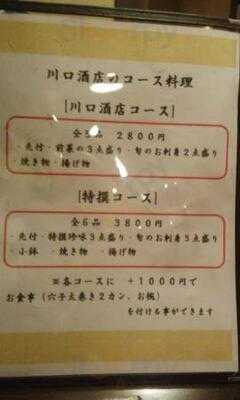 川口酒店のコース料理
[川口酒店コース]
全5品 2800円
・先付・前菜の3点盛り・旬のお刺身2点盛り
・焼き物・揚げ物
[特撰コース]
全6品 3800円
・先付・特撰珍味3点盛り・旬のお刺身3点盛り
・小鉢 ・焼き物 ・揚げ物
※各コースに +1000円で
お食事(穴子太巻き2カン、お椀)
を付ける事ができます